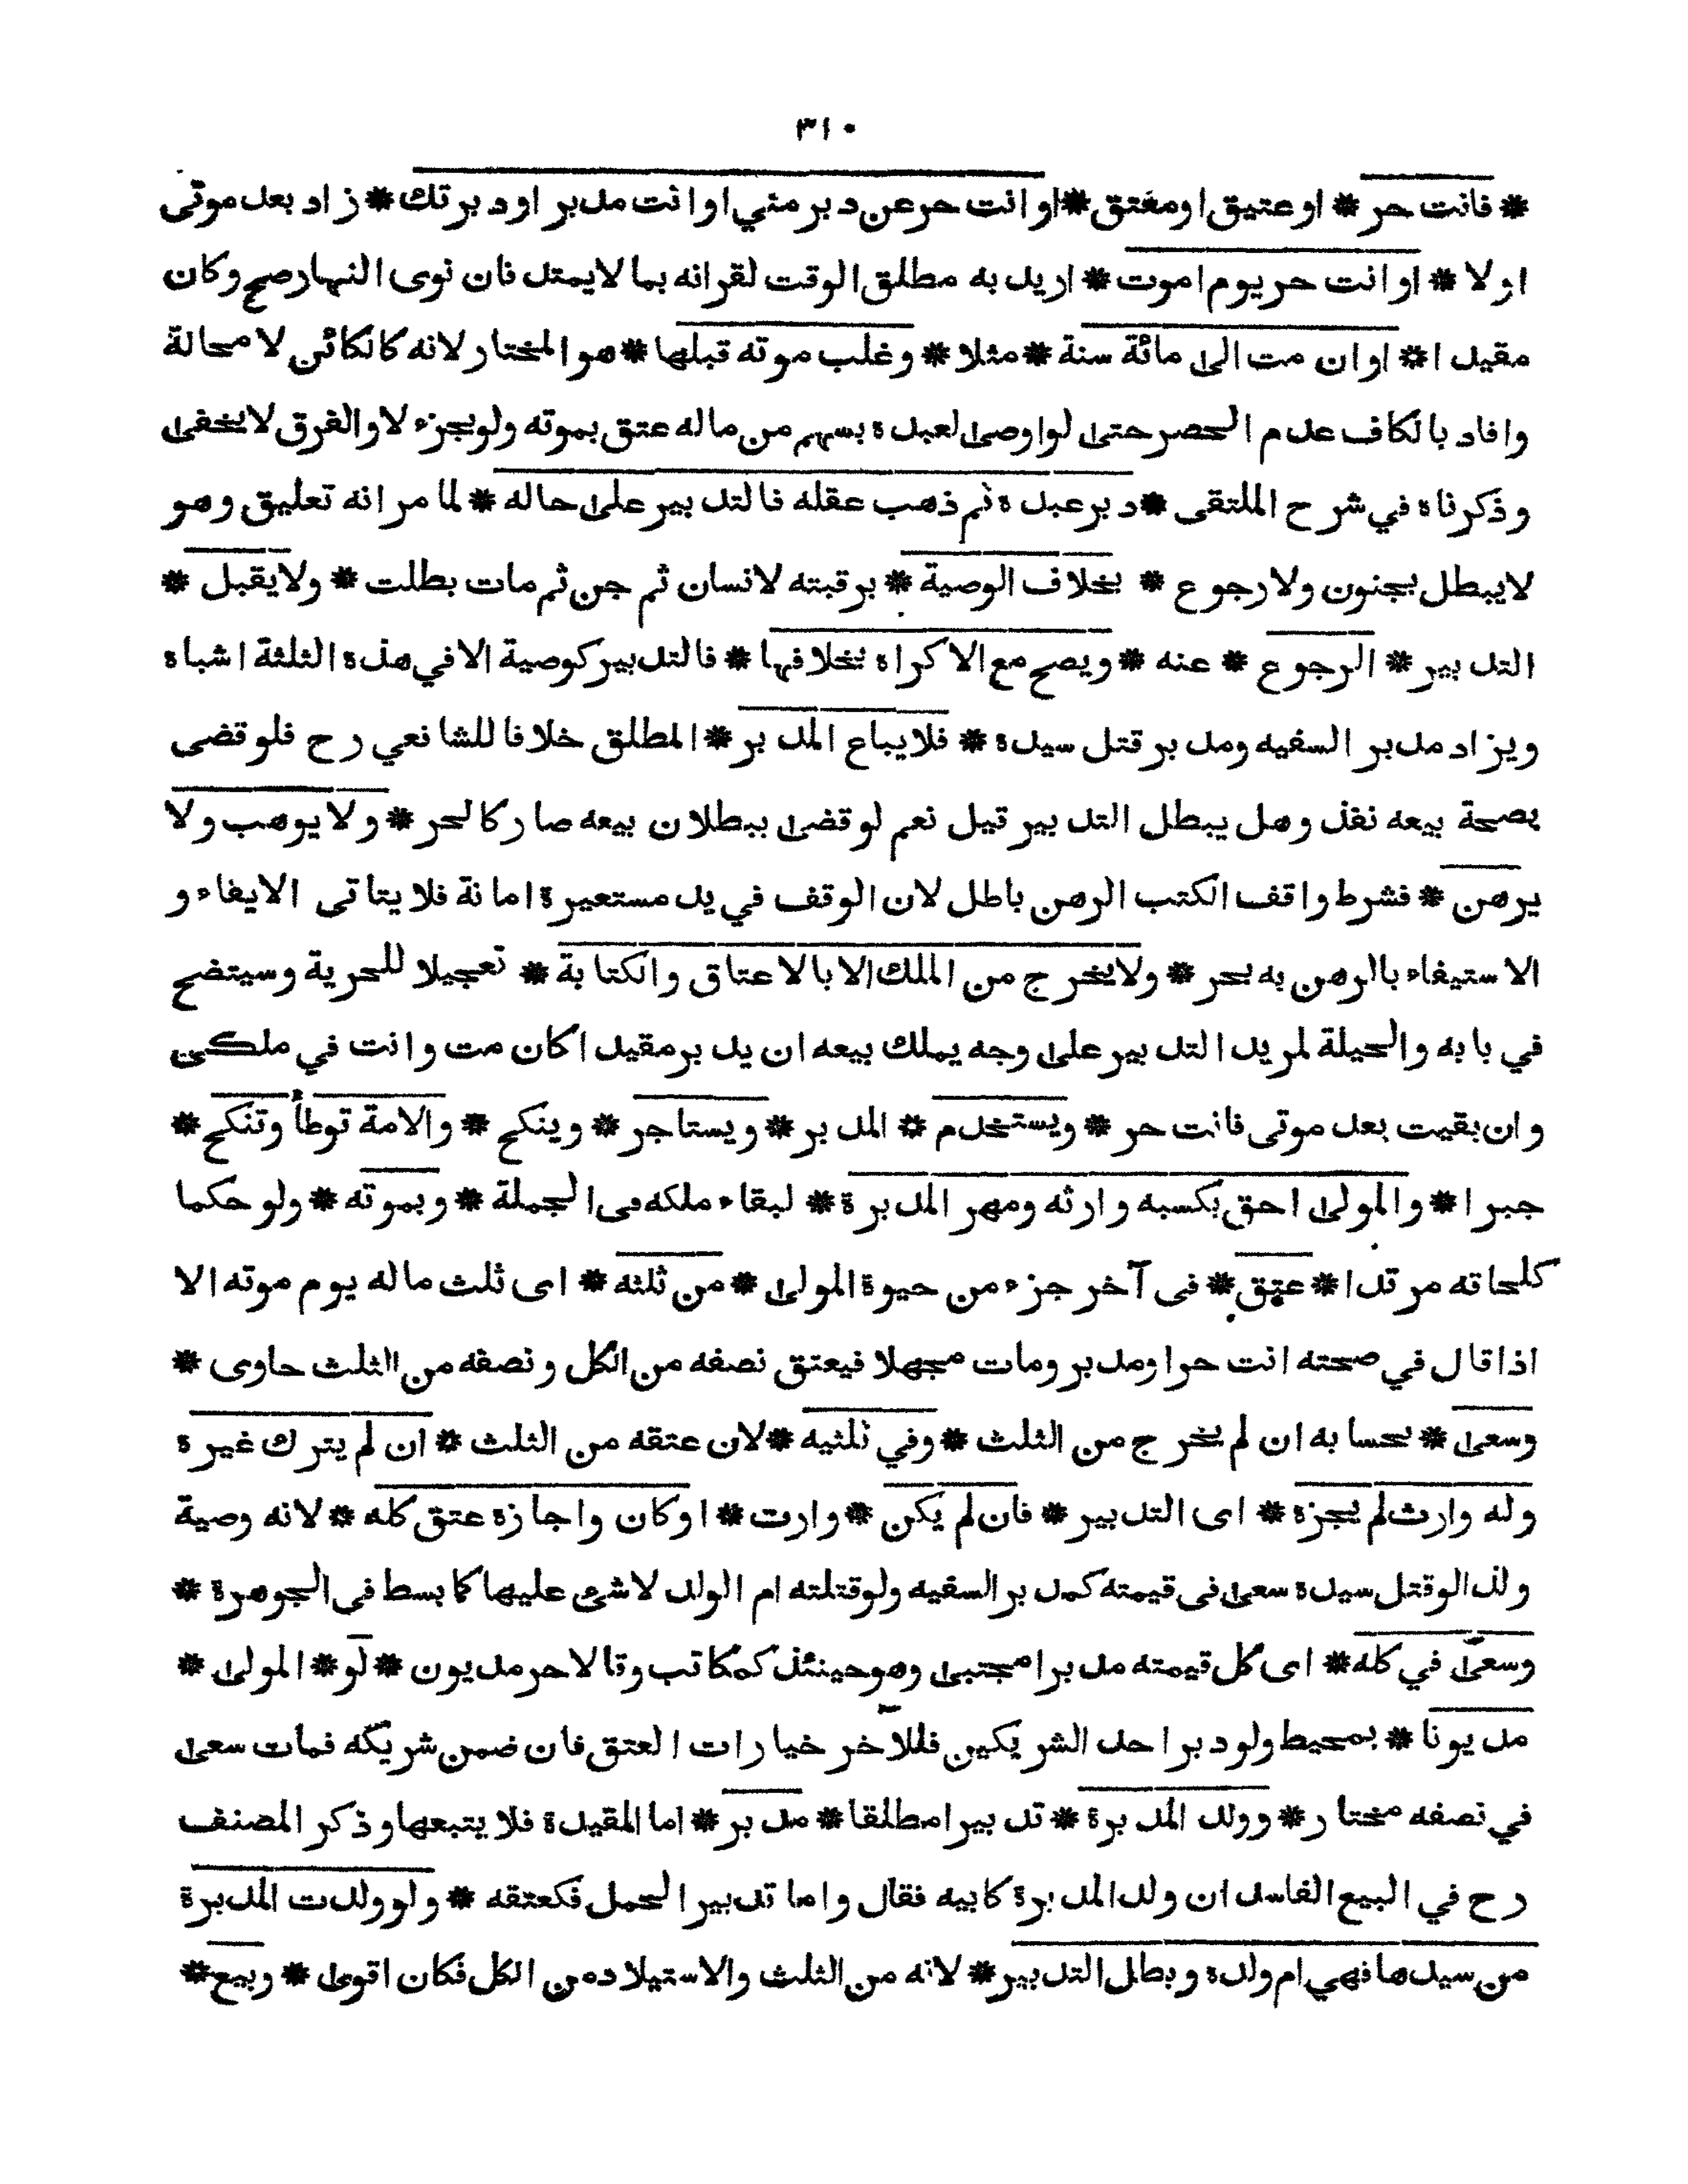 ٣١٠
* فانت حر * او عتيق او معتق * او انت حر عن دبر مني او انت مدبر او دبرتك * زاد بعد موتى
اولا * او انت حر يوم اموت * اريد به مطلق الوقت لقرانه بما لا يمتد فان نوى النهار صح وكان
مقيدا * او ان مت الى مائة سنة * مثلا * وغلب موته قبلها * هو المختار لانه كالكائن لا محالة
وافاد بالكاف عدم الحصر حتى لو اوصى لعبده بسهم من ماله عتق بموته ولو بجزء لا والفرق لا يخفى
وذكرناه في شرح الملتقى * دبر عبده ثم ذهب عقله فالتدبير على حاله * لما مر انه تعليق وهو
لا يبطل بجنون ولا رجوع * بخلاف الوصية * برقبته لانسان ثم جن ثم مات بطلت * ولا يقبل *
التدبير * الرجوع * عنه * ويصح مع الاكراه بخلافها * فالتدبير كوصية الا في هذه الثلثة اشباه
ويزاد مدبر السفيه ومدبر قتل سيده * فلا يباع المدبر * المطلق خلافا للشافعي رح فلو قضى
بصحة بيعه نفذ وهل يبطل التدبير قيل نعم لو قضى ببطلان بيعه صار كالحر * ولا يوهب ولا
يرهن * فشرط واقف الكتب الرهن باطل لان الوقف في يد مستعيره امانة فلا يتاتى الايفاء و
الاستيفاء بالرهن به بحر * ولا يخرج من الملك الا بالاعتاق والكتابة * تعجيلا للحرية وسيتضح
في بابه والحيلة لمريد التدبير على وجه يملك بيعه ان يدبر مقيدا كان مت وانت في ملكى
وان بقيت بعد موتى فانت حر * ويستخدم * المدبر * ويستاجر * وينكح * والامة توطأ وتنكح *
جبرا * والمولى احق بكسبه وارثه ومهر المدبرة * لبقاء ملكه فى الجملة * وبموته * ولو حكما
كلحاقه مرتدا * عتق * فى آخر جزء من حيوة المولى * من ثلثه * اى ثلث ماله يوم موته الا
اذا قال في صحته انت حر او مدبر ومات مجهلا فيعتق نصفه من الكل ونصفه من الثلث حاوى *
وسعى * بحسابه ان لم يخرج من الثلث * وفي ثلثيه * لان عتقه من الثلث * ان لم يترك غيره
وله وارث لم يجزه * اى التدبير * فان لم يكن * وارث * او كان واجازه عتق كله * لانه وصية
ولذا لو قتل سيده سعى فى قيمته كمدبر السفيه ولو قتلته ام الولد لا شئ عليها كما بسط فى الجوهرة *
وسعى في كله * اى كل قيمته مدبرا مجتبى وهو حينئذ كمكاتب وقالا حر مديون * لو * المولى *
مديونا * بمحيط ولو دبر احد الشريكين فللآخر خيارات العتق فان ضمن شريكه فمات سعى
في نصفه مختار * وولد المدبرة * تدبيرا مطلقا * مدبر * اما المقيدة فلا يتبعها وذكر المصنف
رح في البيع الفاسد ان ولد المدبرة كابيه فقال واما تدبير الحمل فكعتقه * ولو ولدت المدبرة
من سيدها فهي ام ولده وبطل التدبير * لانه من الثلث والاستيلاد من الكل فكان اقوى * وبيع *